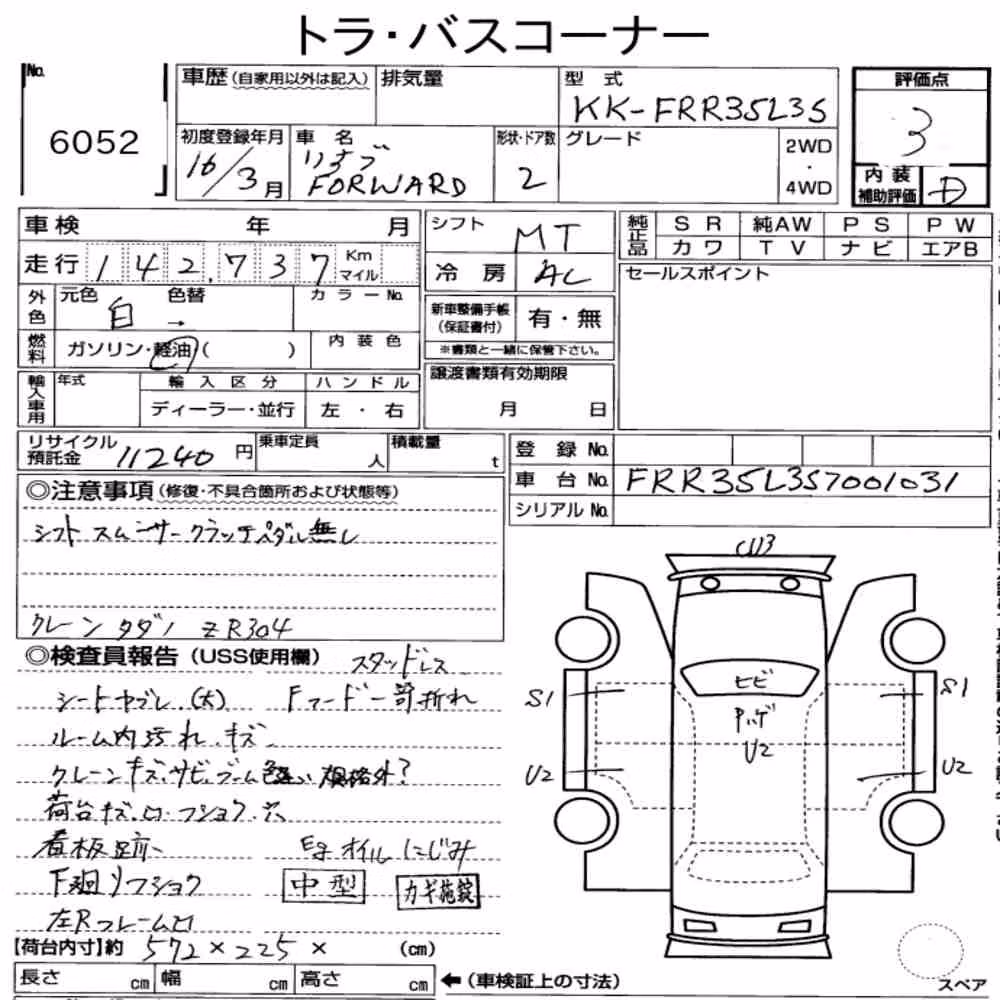 トラ・バスコーナー
No.
6052
車歴(自家用以外は記入)
排気量
型式
KK-FRR35L3S
評価点
3
初度登録年月
16/3月
車名
いすゞ
FORWARD
形状・ドア数
2
グレード
2WD
・
4WD
内装
補助評価
D
車検 年 月
走行 142,737 Km
マイル
外色
元色 白
色替 →
カラーNo.
燃料
ガソリン・軽油( )
内装色
輸入車用
年式
輸入区分
ディーラー・並行
ハンドル
左・右
シフト
MT
冷房
AC
新車整備手帳
(保証書付)
有・無
※書類と一緒に保管下さい。
譲渡書類有効期限
月 日
純正品
SR 純AW PS PW
カワ TV ナビ エアB
セールスポイント
リサイクル
預託金 11240 円
乗車定員
人
積載量
t
登録No.
車台No. FRR35L3S7001031
シリアルNo.
◎注意事項(修復・不具合箇所および状態等)
シフト スムーサー クラッチペダル無し
クレーン タダノ ZR304
◎検査員報告(USS使用欄) スタッドレス
シートヤブレ.(大) Fフード一部折れ
ルーム内汚れ.キズ
クレーンキズ.サビ.ブーム色違い 規格外?
荷台キズ.凹.フショク.穴
看板跡 Egオイルにじみ
下廻りフショク 中型 カギ施錠
左Rフレーム凹
【荷台内寸】約 572×225× (cm)
長さ cm 幅 cm 高さ cm
←(車検証上の寸法)
U3
ヒビ
Pハゲ
U2
S1
U2
S1
U2
スペア